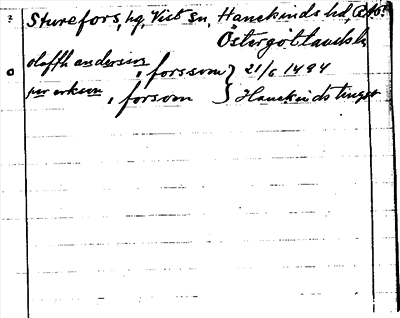 Sturefors, hg, Vist sn, Hanekinds hd,
Östergötlands l.
olaffh andersun, forssom } 21/6 1484
per erksun, forsom } Hanekinds tinget